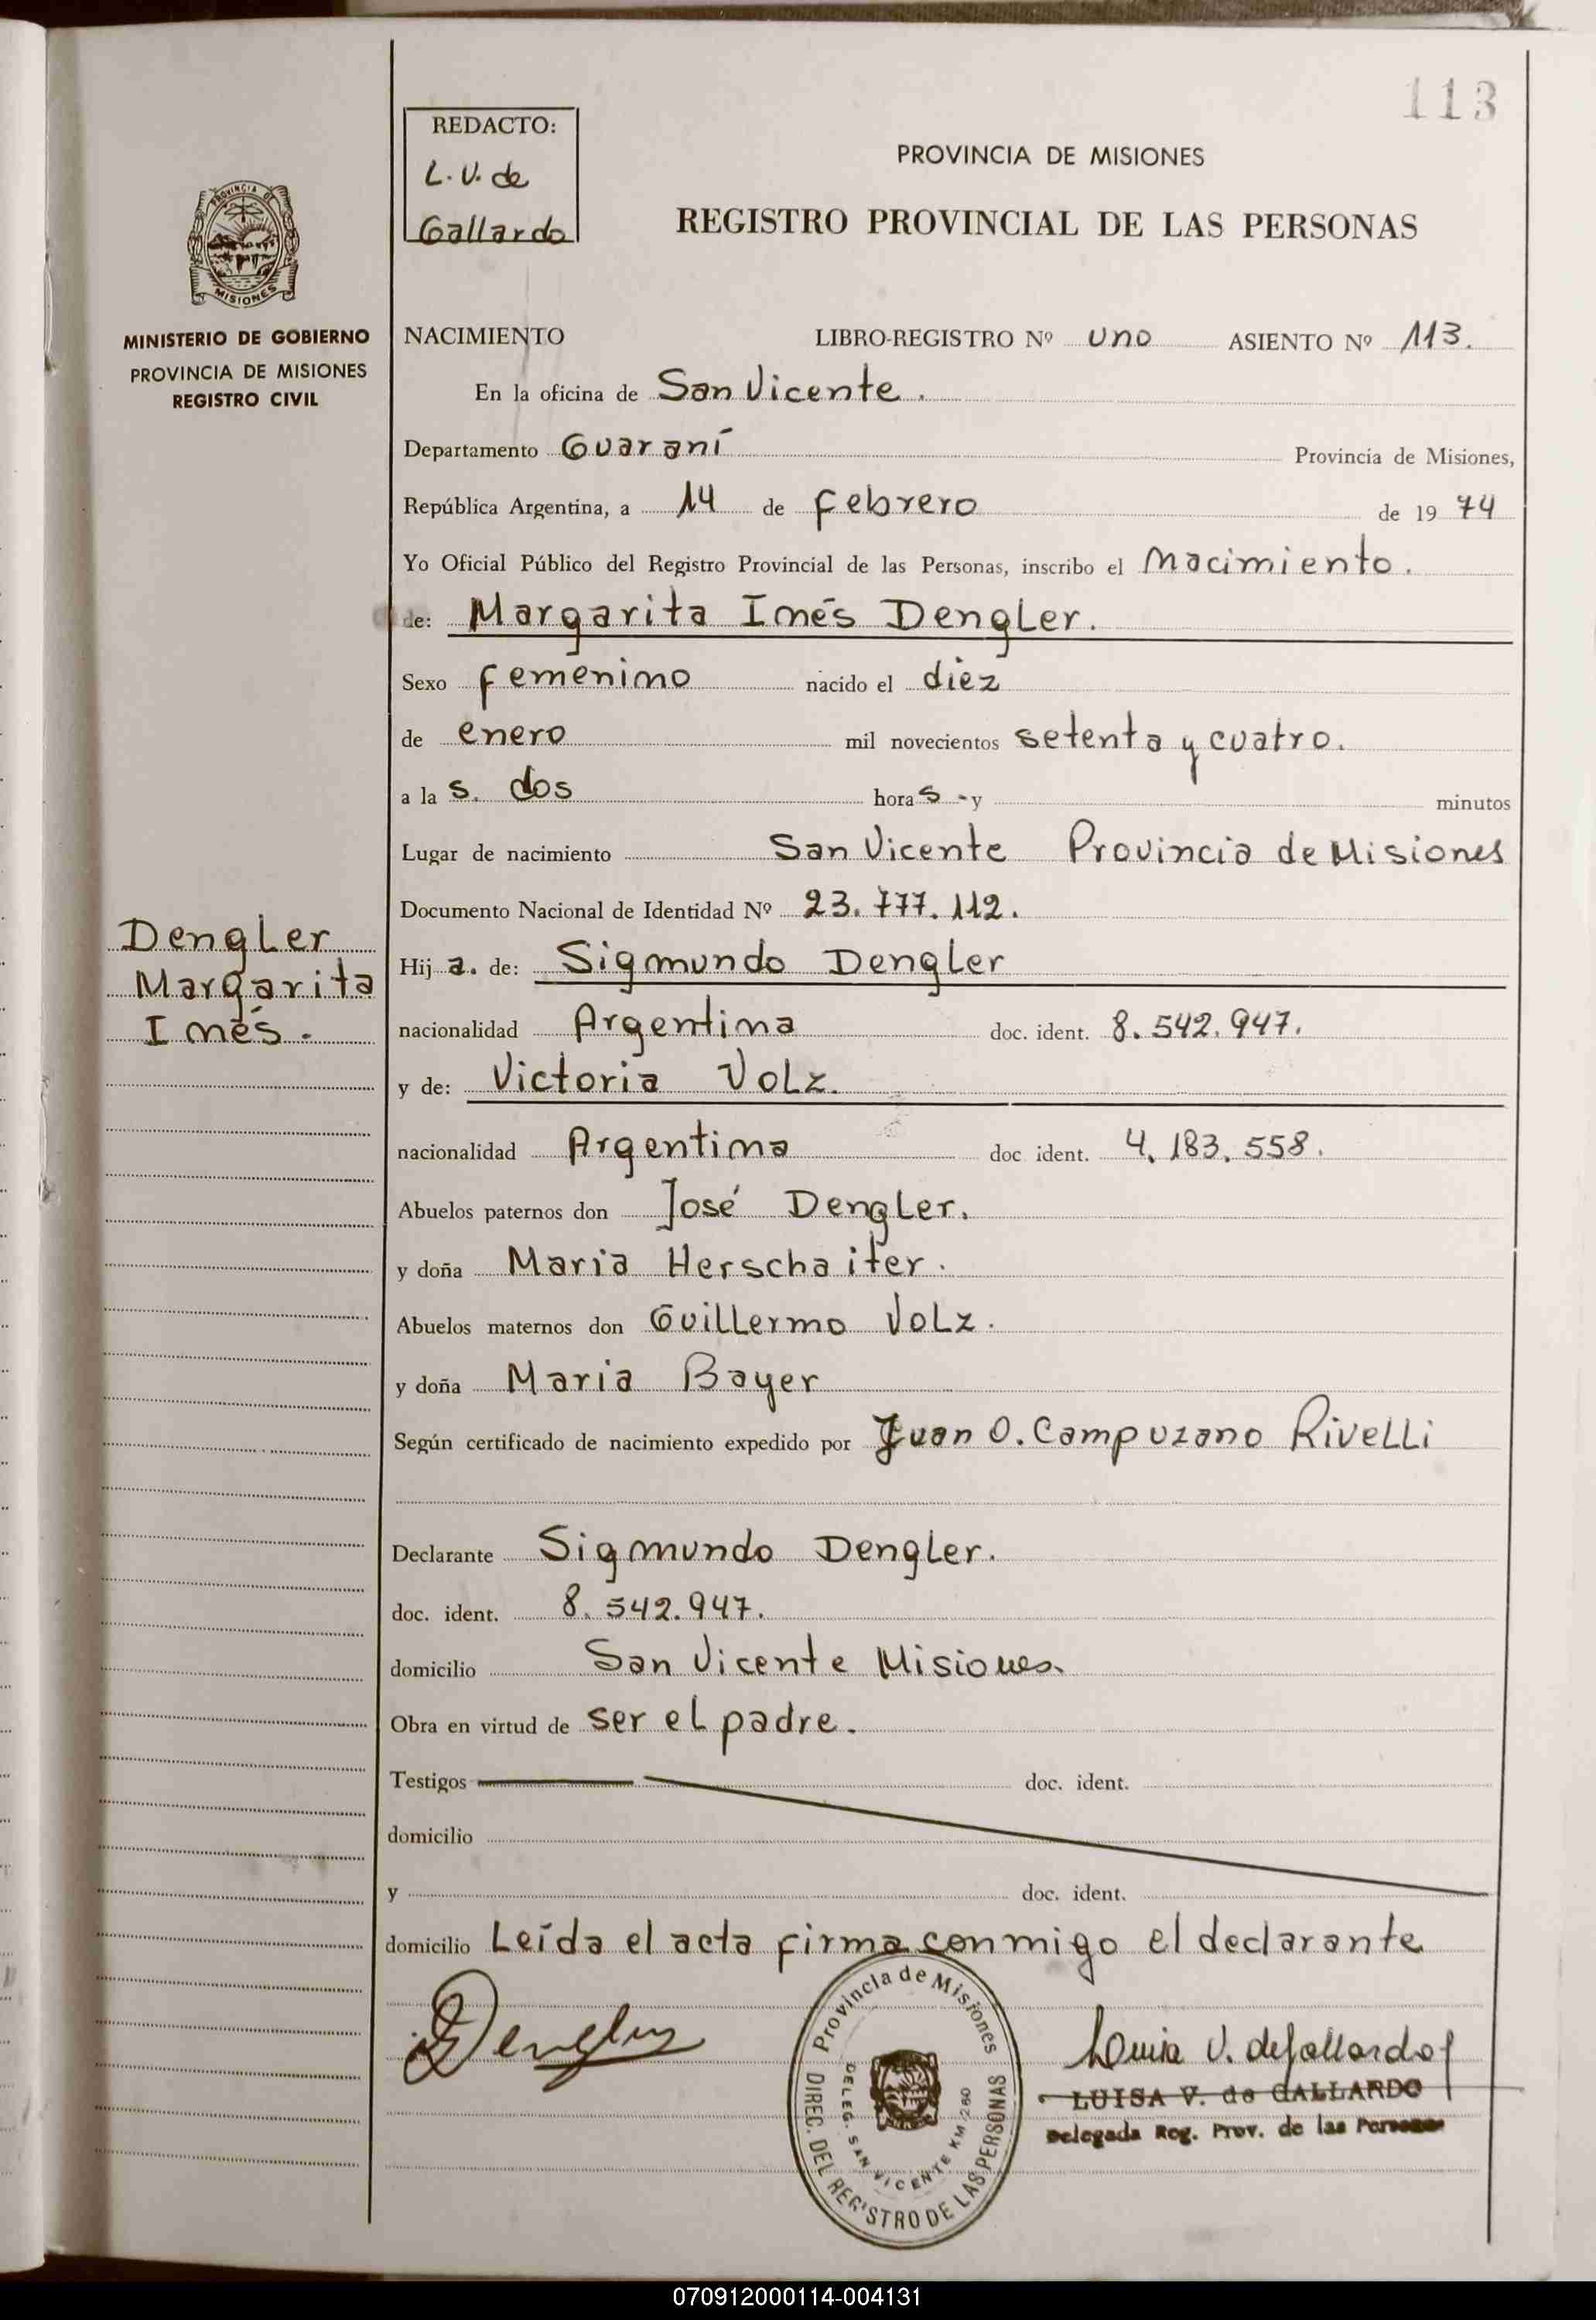 113
REDACTO:
L. V. de
Gallardo
PROVINCIA DE MISIONES
REGISTRO PROVINCIAL DE LAS PERSONAS
PROVINCIA DE
MISIONES
MINISTERIO DE GOBIERNO
PROVINCIA DE MISIONES
REGISTRO CIVIL
NACIMIENTO LIBRO-REGISTRO Nº uno ASIENTO Nº 113.
En la oficina de San Vicente.
Departamento Guaraní Provincia de Misiones,
República Argentina, a 14 de febrero de 1974
Yo Oficial Público del Registro Provincial de las Personas, inscribo el Nacimiento.
de: Margarita Inés Dengler.
Sexo femenino nacido el diez
de enero mil novecientos setenta y cuatro.
a la s. dos horas - y minutos
Lugar de nacimiento San Vicente Provincia de Misiones
Documento Nacional de Identidad Nº 23.777.112.
Dengler
Margarita
Inés.
Hij a. de: Sigmundo Dengler
nacionalidad Argentina doc. ident. 8.542.947.
y de: Victoria Volz.
nacionalidad Argentina doc ident. 4.183.558.
Abuelos paternos don José Dengler.
y doña Maria Herschaiter.
Abuelos maternos don Guillermo Volz.
y doña Maria Bayer
Según certificado de nacimiento expedido por Juan O. Campuzano Rivelli
Declarante Sigmundo Dengler.
doc. ident. 8.542.947.
domicilio San Vicente Misiones.
Obra en virtud de ser el padre.
Testigos doc. ident.
domicilio
y doc. ident.
domicilio Leída el acta firma conmigo el declarante
Dengler
Provincia de Misiones
DIREC. DEL REGISTRO DE LAS PERSONAS
DELEG. SAN VICENTE KM. 260
Luisa V. de Gallardo
LUISA V. de GALLARDO
Delegada Reg. Prov. de las Personas
070912000114-004131